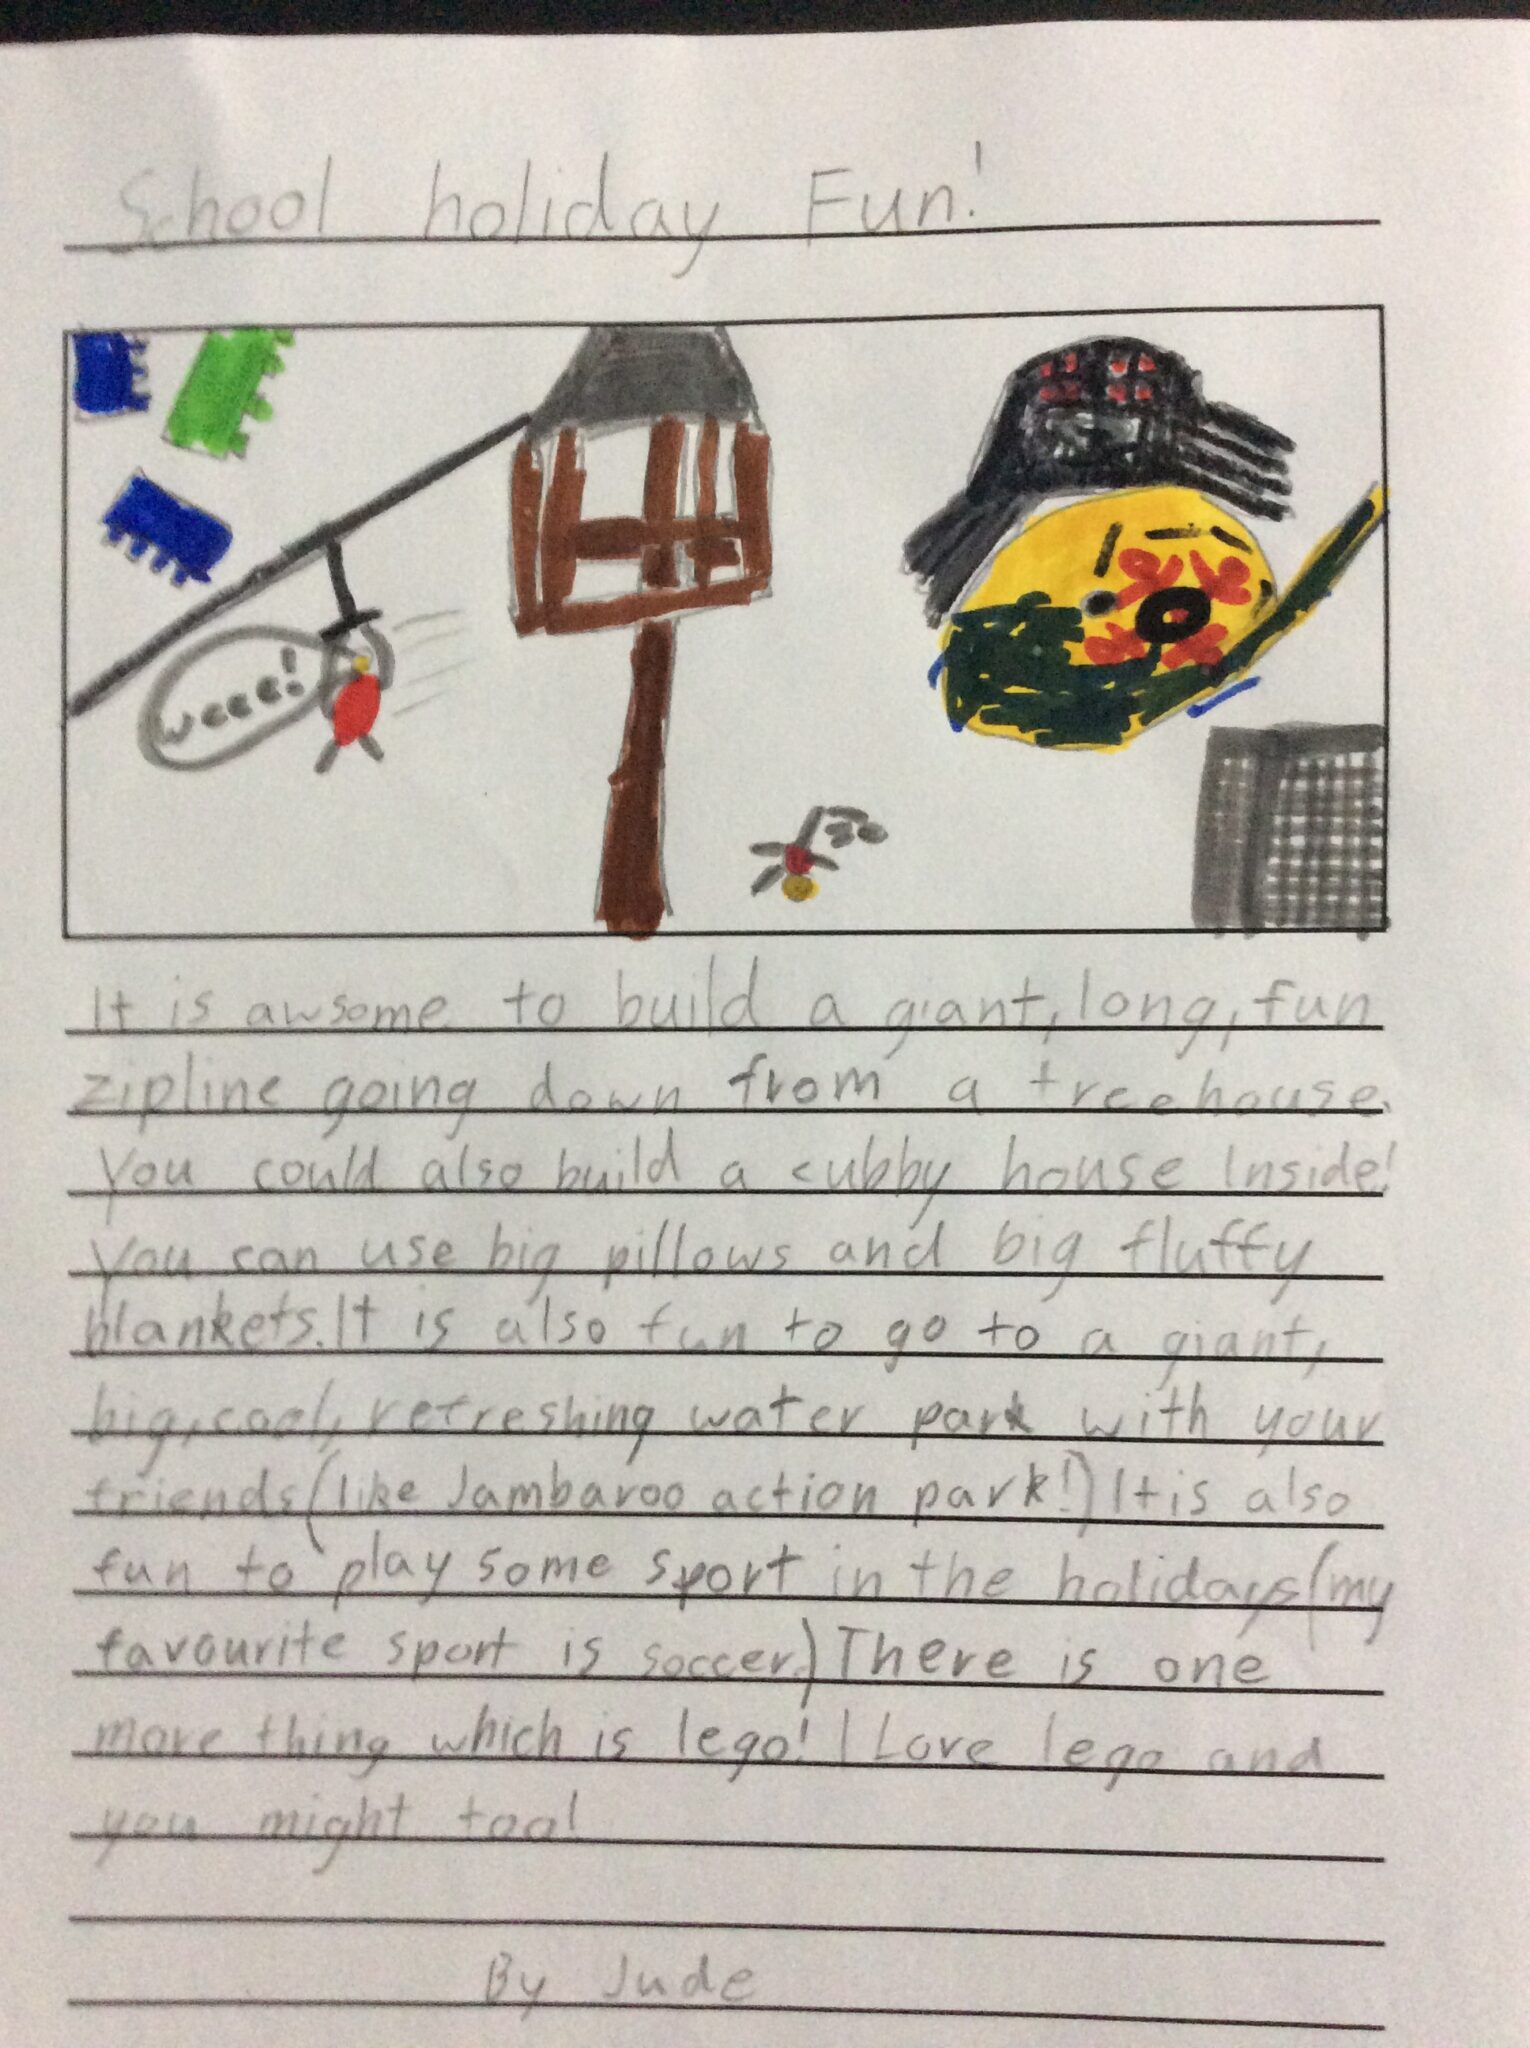 School holiday Fun!
weee!
It is awsome to build a giant, long, fun
zipline going down from a treehouse.
You could also build a cubby house Inside!
You can use big pillows and big fluffy
blankets. It is also fun to go to a giant,
big, cool, refreshing water park with your
friends (like Jambaroo action park!) It is also
fun to play some sport in the holidays (my
favourite sport is soccer.) There is one
more thing which is lego! I Love lego and
you might too!
By Jude